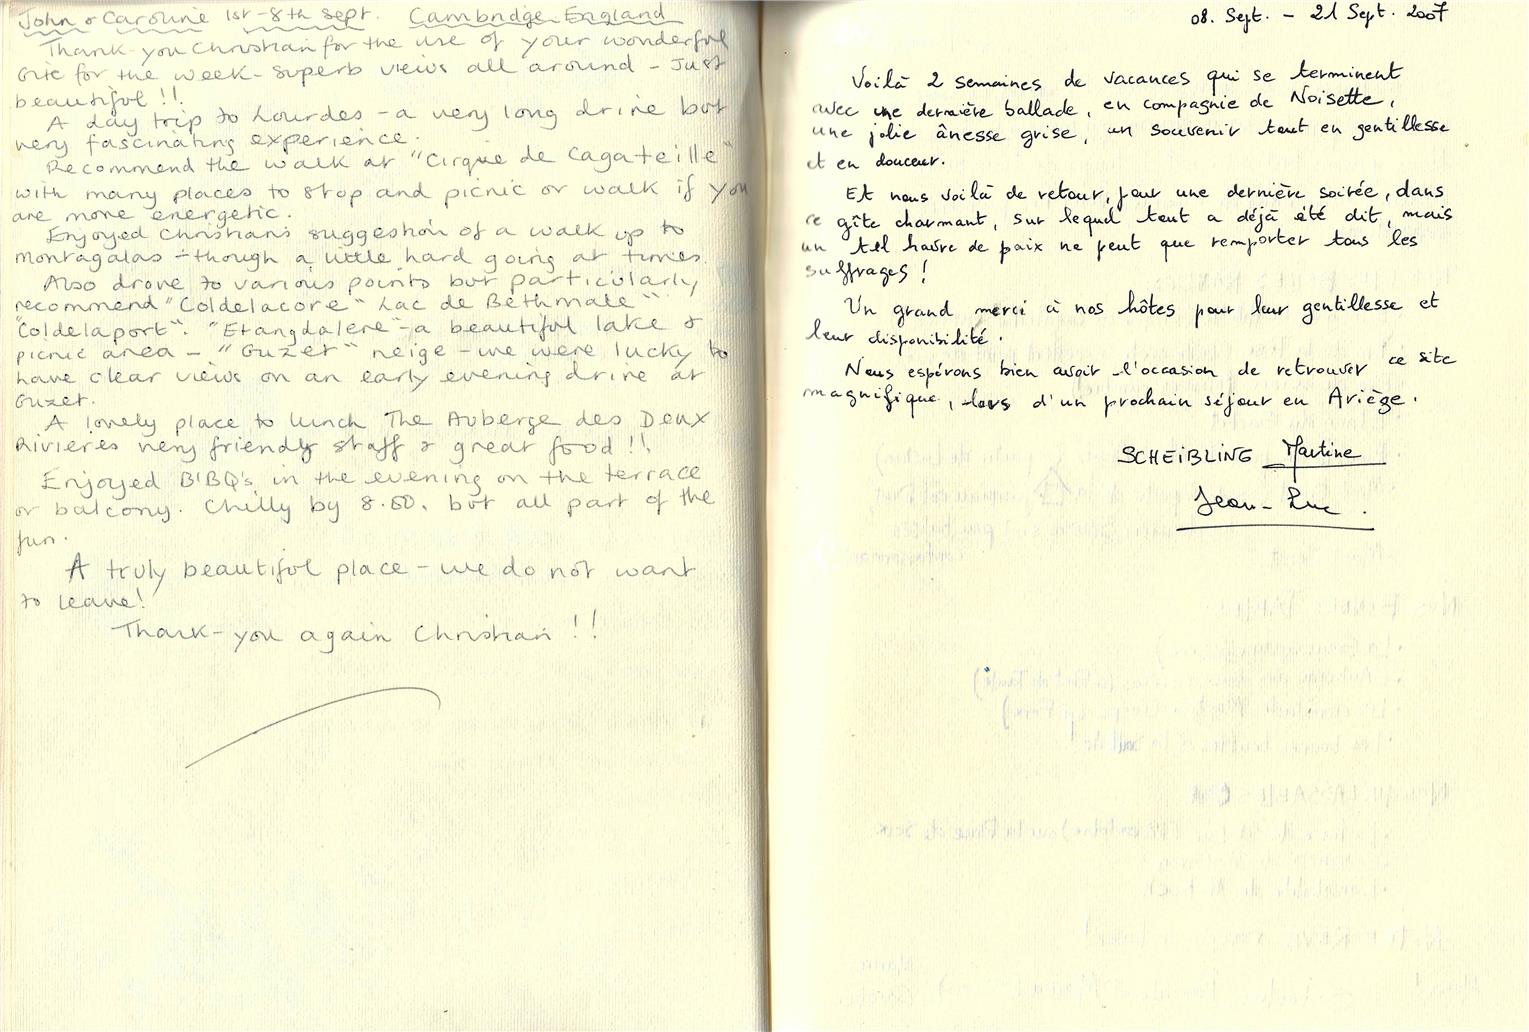 John & Caroline 1st-8th Sept. Cambridge England
Thank-you Christian for the use of your wonderful
Gite for the week - superb views all around - Just
beautiful !!
A day trip to Lourdes - a very long drive but
very fascinating experience.
Recommend the walk at "Cirque de Cagateille"
with many places to stop and picnic or walk if you
are more energetic.
Enjoyed Christian's suggestion of a walk up to
Montagalas - though a little hard going at times.
Also drove to various points but particularly
recommend "Coldelacore" Lac de Bethmale"
"Coldelaport". "Etangdalere" - a beautiful lake &
picnic area - "Guzet" neige - we were lucky to
have clear views on an early evening drive at
Guzet.
A lovely place to lunch The Auberge des Deux
Rivieres very friendly staff & great food !!
Enjoyed B'BQ's in the evening on the terrace
or balcony. Chilly by 8.00. but all part of the
fun.
A truly beautiful place - we do not want
to leave!
Thank-you again Christian !!
08. Sept. - 21 Sept. 2007
Voilà 2 semaines de vacances qui se terminent
avec une dernière ballade, en compagnie de Noisette,
une jolie ânesse grise, un souvenir tout en gentillesse
et en douceur.
Et nous voilà de retour, pour une dernière soirée, dans
ce gîte charmant, sur lequel tout a déjà été dit, mais
un tel havre de paix ne peut que remporter tous les
suffrages !
Un grand merci à nos hôtes pour leur gentillesse et
leur disponibilité.
Nous espérons bien avoir l'occasion de retrouver ce site
magnifique, lors d'un prochain séjour en Ariège.
SCHEIBLING Martine
Jean-Luc.